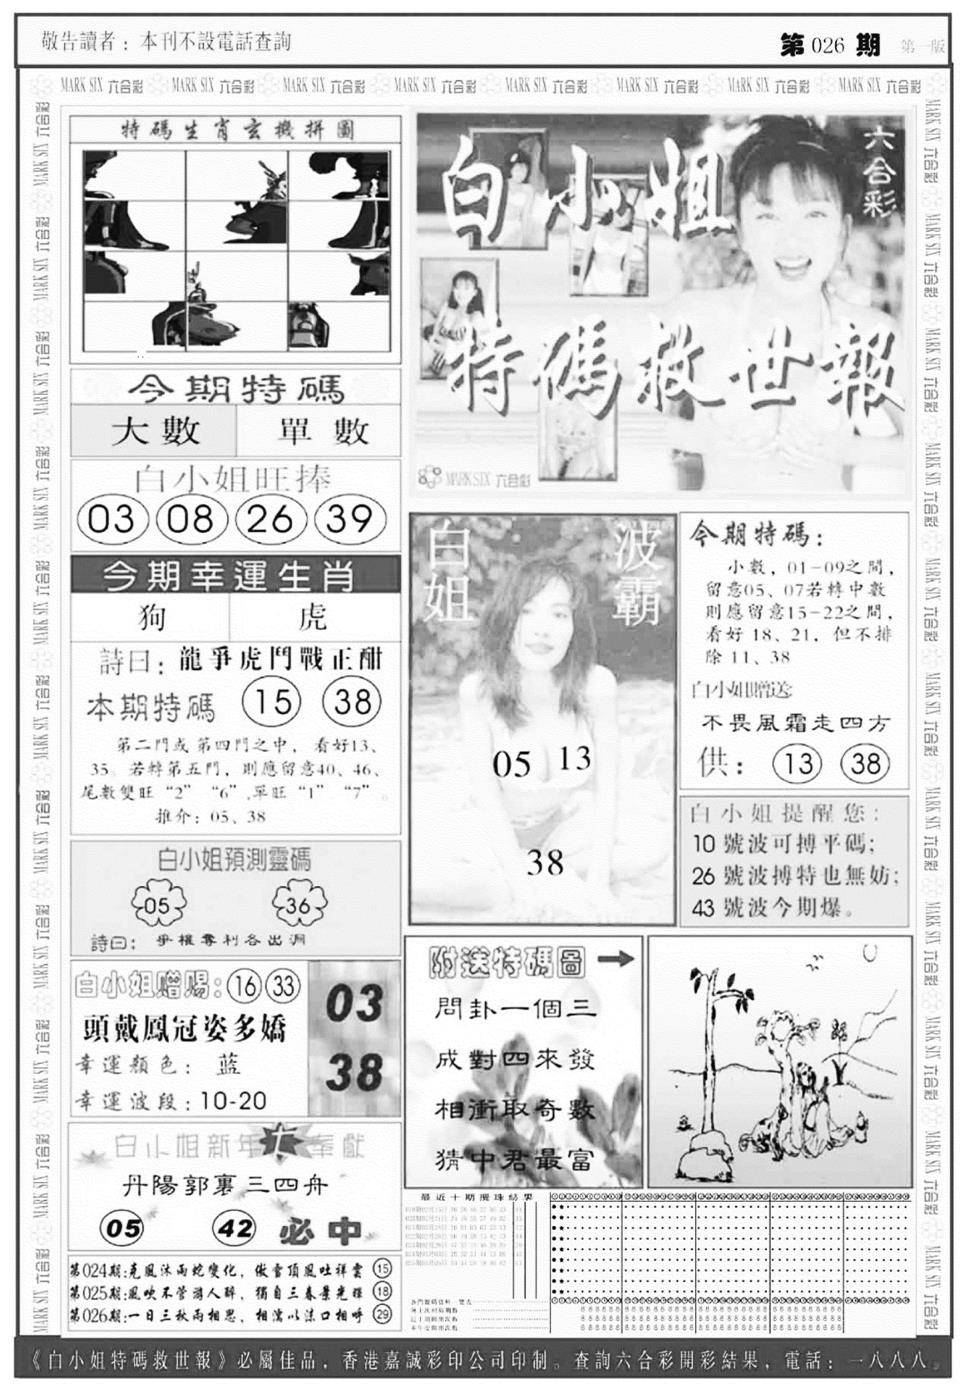 敬告讀者：本刊不設電話查詢
第 026 期 第一版
MARK SIX 六合彩 MARK SIX 六合彩 MARK SIX 六合彩 MARK SIX 六合彩 MARK SIX 六合彩 MARK SIX 六合彩 MARK SIX 六合彩 MARK SIX 六合彩
特碼生肖玄機拼圖
今期特碼
大數 單數
白小姐旺捧
03 08 26 39
今期幸運生肖
狗 虎
詩曰：龍爭虎鬥戰正酣
本期特碼 15 38
第二門或第四門之中，看好13、
35。若轉第五門，則應留意40、46、
尾數雙旺“2”“6”,單旺“1”“7”。
推介：05、38
白小姐預測靈碼
05 36
詩曰：爭權奪利各出洞
白小姐赠赐：16 33
頭戴鳳冠姿多嬌
幸運顏色：蓝
幸運波段：10-20
03
38
白小姐新年 奉獻
丹陽郭裏三四舟
05 42 必中
第024期:克風沐雨蛇變化，傲雪頂風吐祥雲 15
第025期:風吹不管游人醉，獨自三春景光輝 18
第026期:一日三秋兩相思，相濡以沫口相呼 29
六合彩
白小姐
特碼救世報
MARK SIX 六合彩
白姐 波霸
05 13
38
今期特碼：
小數，01-09之間，
留意05、07若轉中數
則應留意15-22之間，
看好 18、21，但不排
除 11、38
白小姐贈送:
不畏風霜走四方
供：13 38
白小姐提醒您：
10 號波可搏平碼；
26 號波搏特也無妨；
43 號波今期爆。
附送特碼圖
問卦一個三
成對四來發
相衝取奇數
猜中君最富
最近十期攪珠結果
《白小姐特碼救世報》必屬佳品，香港嘉誠彩印公司印制。查詢六合彩開彩結果，電話：一八八八。